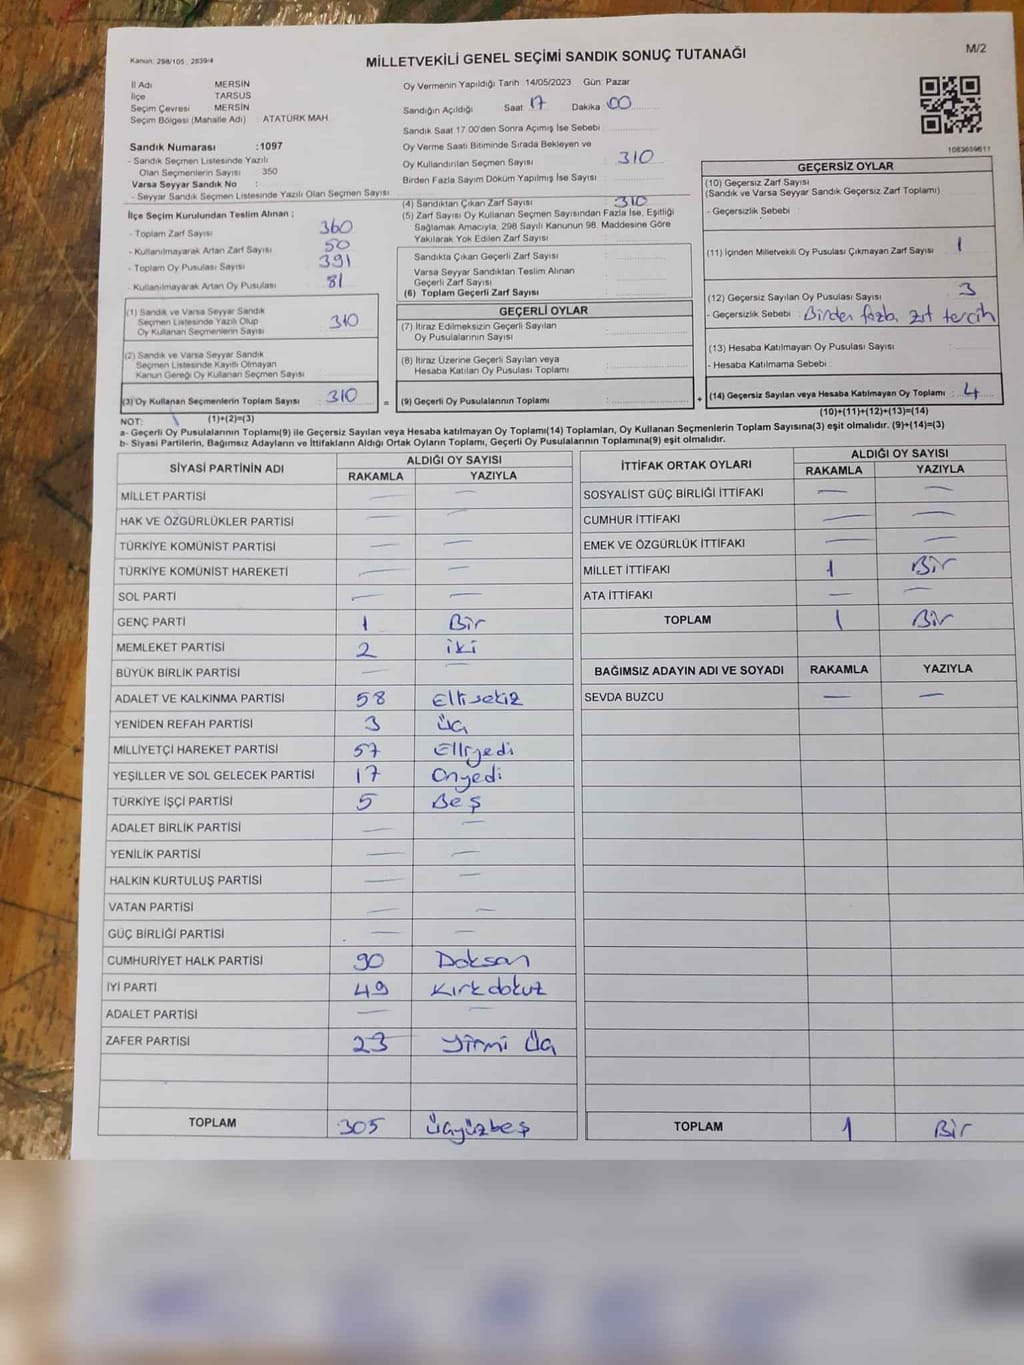 Kanun: 298/105 , 2839/4
MİLLETVEKİLİ GENEL SEÇİMİ SANDIK SONUÇ TUTANAĞI
M/2
İl Adı MERSİN
İlçe TARSUS
Seçim Çevresi MERSİN
Seçim Bölgesi (Mahalle Adı) ATATÜRK MAH.
Sandık Numarası :1097
- Sandık Seçmen Listesinde Yazılı
Olan Seçmenlerin Sayısı 350
Varsa Seyyar Sandık No :
- Seyyar Sandık Seçmen Listesinde Yazılı Olan Seçmen Sayısı
İlçe Seçim Kurulundan Teslim Alınan ;
- Toplam Zarf Sayısı 360
- Kullanılmayarak Artan Zarf Sayısı 50
- Toplam Oy Pusulası Sayısı 391
- Kullanılmayarak Artan Oy Pusulası 81
(1) Sandık ve Varsa Seyyar Sandık
Seçmen Listesinde Yazılı Olup
Oy Kullanan Seçmenlerin Sayısı 310
(2) Sandık ve Varsa Seyyar Sandık
Seçmen Listesinde Kayıtlı Olmayan
Kanun Gereği Oy Kullanan Seçmen Sayısı
(3) Oy Kullanan Seçmenlerin Toplam Sayısı 310 =
(1)+(2)=(3)
Oy Vermenin Yapıldığı Tarih 14/05/2023 Gün: Pazar
Sandığın Açıldığı Saat 17 Dakika 00
Sandık Saat 17.00'den Sonra Açımış İse Sebebi
Oy Verme Saati Bitiminde Sırada Bekleyen ve
Oy Kullandırılan Seçmen Sayısı 310
Birden Fazla Sayım Döküm Yapılmış İse Sayısı
(4) Sandıktan Çıkan Zarf Sayısı 310
(5) Zarf Sayısı Oy Kullanan Seçmen Sayısından Fazla İse, Eşitliği
Sağlamak Amacıyla; 298 Sayılı Kanunun 98. Maddesine Göre
Yakılarak Yok Edilen Zarf Sayısı
Sandıkta Çıkan Geçerli Zarf Sayısı
Varsa Seyyar Sandıktan Teslim Alınan
Geçerli Zarf Sayısı
(6) Toplam Geçerli Zarf Sayısı
GEÇERLİ OYLAR
(7) İtiraz Edilmeksizin Geçerli Sayılan
Oy Pusulalarının Sayısı
(8) İtiraz Üzerine Geçerli Sayılan veya
Hesaba Katılan Oy Pusulası Toplamı
(9) Geçerli Oy Pusulalarının Toplamı +
1083659611
GEÇERSİZ OYLAR
(10) Geçersiz Zarf Sayısı
(Sandık ve Varsa Seyyar Sandık Geçersiz Zarf Toplamı)
- Geçersizlik Sebebi
(11) İçinden Milletvekili Oy Pusulası Çıkmayan Zarf Sayısı 1
(12) Geçersiz Sayılan Oy Pusulası Sayısı 3
- Geçersizlik Sebebi : Birden fazla zıt tercih
(13) Hesaba Katılmayan Oy Pusulası Sayısı
- Hesaba Katılmama Sebebi :
(14) Geçersiz Sayılan veya Hesaba Katılmayan Oy Toplamı : 4
(10)+(11)+(12)+(13)=(14)
NOT:
a- Geçerli Oy Pusulalarının Toplamı(9) ile Geçersiz Sayılan veya Hesaba katılmayan Oy Toplamı(14) Toplamları, Oy Kullanan Seçmenlerin Toplam Sayısına(3) eşit olmalıdır. (9)+(14)=(3)
b- Siyasi Partilerin, Bağımsız Adayların ve İttifakların Aldığı Ortak Oyların Toplamı, Geçerli Oy Pusulalarının Toplamına(9) eşit olmalıdır.
SİYASİ PARTİNİN ADI ALDIĞI OY SAYISI
RAKAMLA YAZIYLA
MİLLET PARTİSİ — —
HAK VE ÖZGÜRLÜKLER PARTİSİ — —
TÜRKİYE KOMÜNİST PARTİSİ — —
TÜRKİYE KOMÜNİST HAREKETİ — —
SOL PARTİ — —
GENÇ PARTİ 1 Bir
MEMLEKET PARTİSİ 2 iki
BÜYÜK BİRLİK PARTİSİ — —
ADALET VE KALKINMA PARTİSİ 58 Ellisekiz
YENİDEN REFAH PARTİSİ 3 Üç
MİLLİYETÇİ HAREKET PARTİSİ 57 Elliyedi
YEŞİLLER VE SOL GELECEK PARTİSİ 17 Onyedi
TÜRKİYE İŞÇİ PARTİSİ 5 Beş
ADALET BİRLİK PARTİSİ — —
YENİLİK PARTİSİ — —
HALKIN KURTULUŞ PARTİSİ — —
VATAN PARTİSİ — —
GÜÇ BİRLİĞİ PARTİSİ — —
CUMHURİYET HALK PARTİSİ 90 Doksan
İYİ PARTİ 49 Kırkdokuz
ADALET PARTİSİ — —
ZAFER PARTİSİ 23 Yirmi Üç
TOPLAM 305 Üçyüzbeş
İTTİFAK ORTAK OYLARI ALDIĞI OY SAYISI
RAKAMLA YAZIYLA
SOSYALİST GÜÇ BİRLİĞİ İTTİFAKI — —
CUMHUR İTTİFAKI — —
EMEK VE ÖZGÜRLÜK İTTİFAKI — —
MİLLET İTTİFAKI 1 Bir
ATA İTTİFAKI — —
TOPLAM 1 Bir
BAĞIMSIZ ADAYIN ADI VE SOYADI RAKAMLA YAZIYLA
SEVDA BUZCU — —
TOPLAM 1 Bir